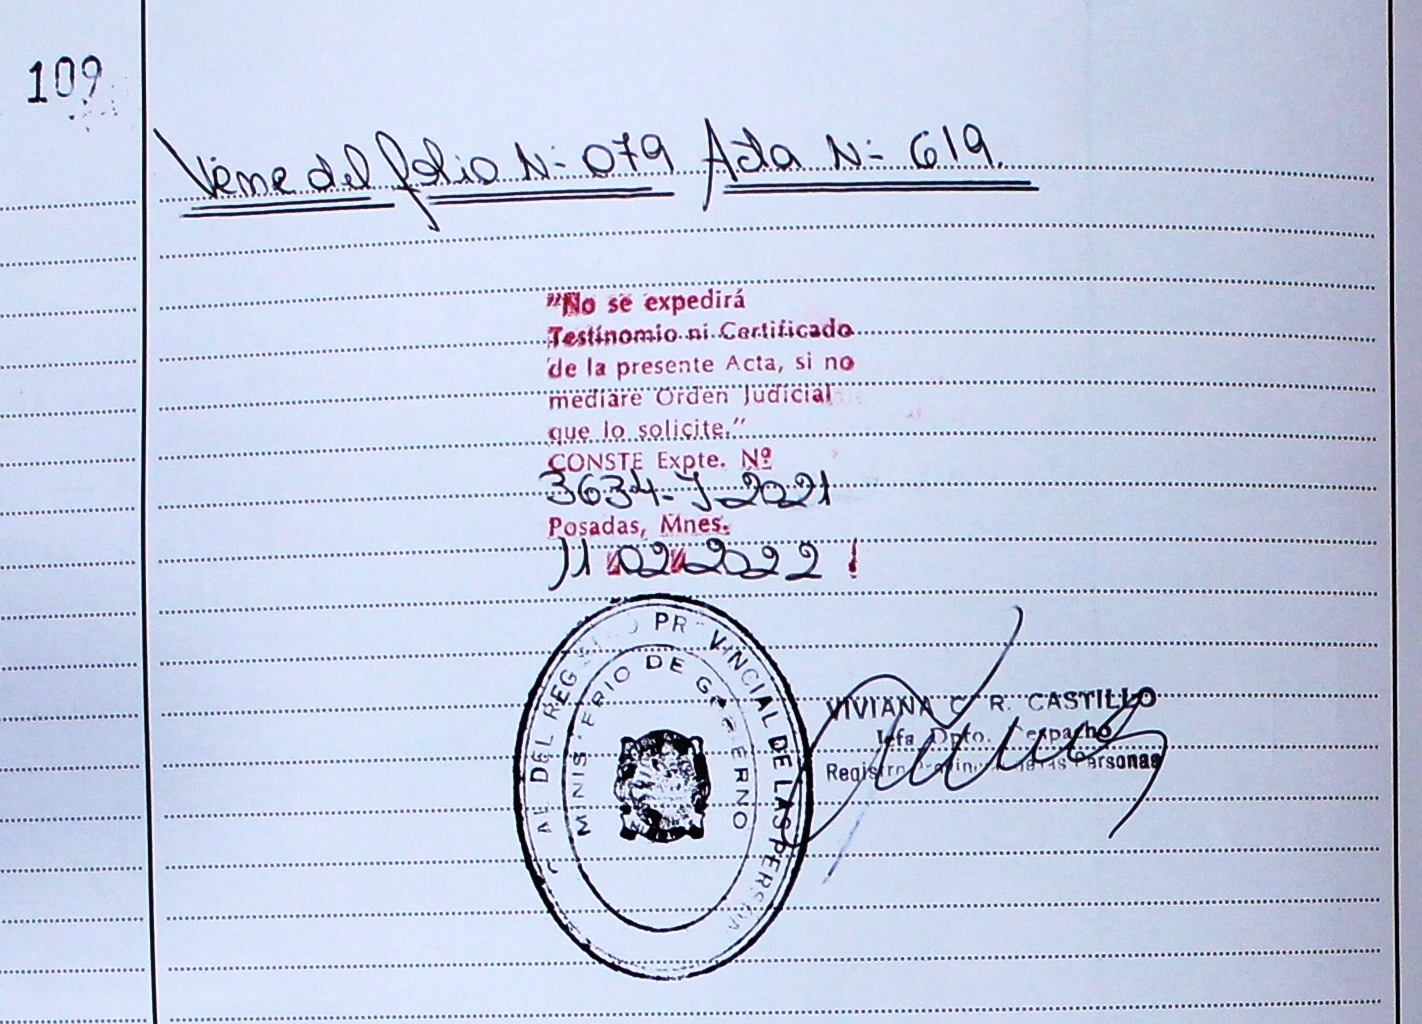 109
Viene del folio N- 079 Acta N- 619.
"No se expedirá
Testinomio ni Certificado
de la presente Acta, si no
mediare Orden Judicial
que lo solicite."
CONSTE Expte. Nº
3634-J-2021
Posadas, Mnes.
11 02 2022
AL DEL REG O PR VINCIAL DE LAS PERSONA
MINISTERIO DE GOBIERNO
VIVIANA C R. CASTILLO
Jefa Dpto. Despacho
Registro Provincial de las Personas